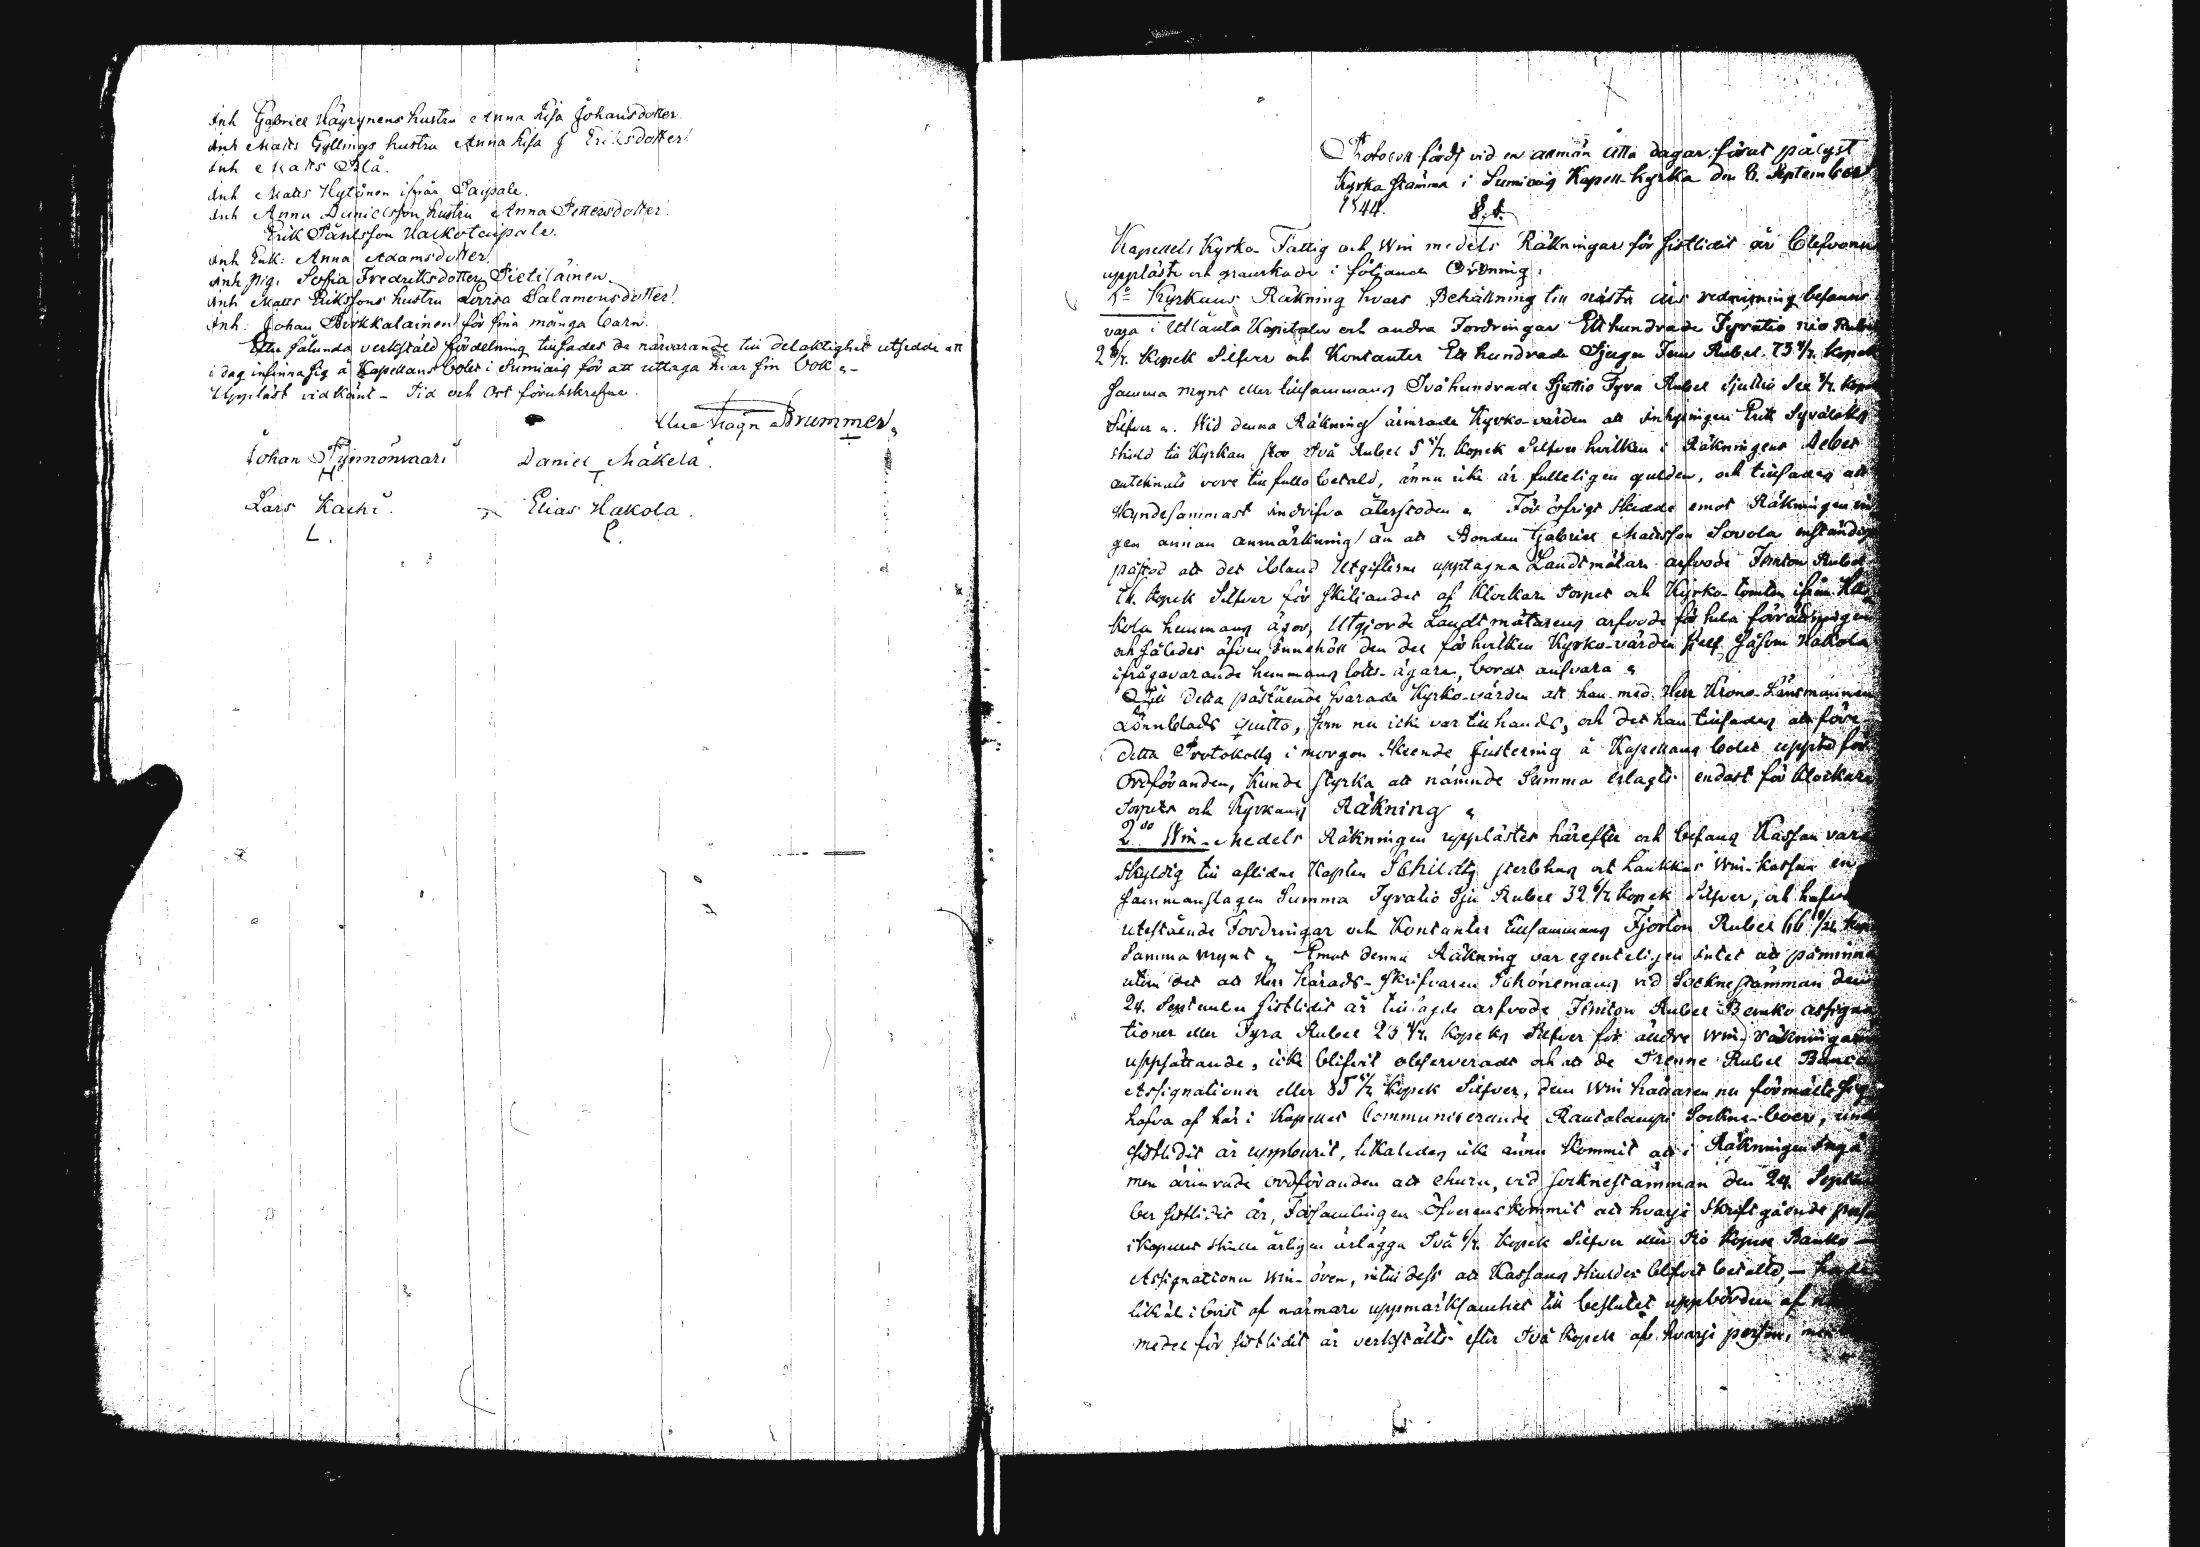 Inh Gabriel Häyrynens hustru Anna Lisa Johansdotter.
Inh Matts Gyllings hustru Anna Lisa Eriksdotter.
Inh Matts Blå.
Inh Matts Hytönen ifrån Paipale.
Inh Anna Danielsson hustru Anna Pettersdotter.
Erik Påhlsson
Inh Enk: Anna Adamsdotter.
Inh pig. Sofia Fredriksdotter Pietiläinen
Inh Matts Erikssons hustru Lovisa Salamonsdotter.
Inh: Johan Pirkkalainen för sina många barn.
Efter sålunda verkstäld fördelning tillsades de närvarande till delaktighet utsedde att
i dag infinna sig å Kapellans bolet i Sumiais för att uttaga hvar sin bok.
Uppläst vidkänt - Tid och Ort förutskrefne.
Brummer.
Johan Daniel Mäkelä.
Lars Kaihi. Elias Hakola.
L. E.
Protocoll fördt vid en allmän åtta dagar förut pålyst
Kyrko stämma i Sumiais Kapell-kyrka den 8. September
1844.
§. 1.
Kapellets Kyrko- Fattig och Win medels Räkningar för sistlidit år blefvo nu
uppläste och granskade i följande Ordning:
1º Kyrkans Räkning hvars Behållning till nästa års redovisning befanns
vara i Utlånta Kapitaler och andra Fordringar Ett hundrade Fyratio nio Rubel
2 6/7. Kopek Silfver och Kontanter Ett hundrade Tjugu Fem Rubel 73 Kopek
samma mynt eller tillsammans Två hundrade Sjuttio Fyra Rubel Sjuttio Sex Kopek
Silfver. Wid denna Räkning ärinrade Kyrko-värden att Inhysingen Erik
skuld till Kyrkan stor Två Rubel 5 Kopek Silfver hvilken i Räkningens Debet
antecknats vore till fullo betald, ännu icke är fulleligen gulden, och tillsades att
skyndesammast indrifva återstoden. För öfrigt skedde emot Räkningen in-
gen annan anmärkning än att Bonden Gabriel Mattsson Sovola enständigt
påstod att det ibland Utgifterne upptagna Landtmätare arfvode Femton Rubel
Kopek Silfver för skiljandet af Klockare Torpet och Kyrko-tomten ifrån Ha-
kola hemmans ägor, Utgjorde Landtmätarens arfvode för hela förrättningen
och således äfven innehöll den del för hvilken Kyrko-värden sjelf såsom Hakola
ifrågavarande hemmans lotts-ägare, borde ansvara.
Till detta påstående svarade Kyrko-värden att han med Herr Krono-Länsmannen
Lönnblads quitto, som nu icke var till hands, och det han tillsades att före
detta Protokolls i morgon skeende justering å Kapellans bolet uppte för
Ordföranden, kunde styrka att nämnde Summa erlagts endast för Klockare
Torpets och Kyrkans Räkning.
2do Win-Medels Räkningen upplästes härefter och befans Kassan vara
skyldig till aflidne Kapten Schildts sterbhus och Laukkas Win-kassan en
sammanslagen Summa Fyratio Sju Rubel 32 6/7 Kopek Silfver, och hafva
utestående Fordringar och Kontanter tillsammans Fjorton Rubel 66 Kop
samma mynt. Emot denna Räkning var egenteligen intet att påminna
utom det att Herr Härads-skrifvaren Schönemans vid Sockne stämman den
24. September sistlidit år tillagde arfvode Femton Rubel Banko assigna-
tioner eller Fyra Rubel 25 Kopeks Silfver för äldre Win-räkningars
uppsättande, icke blifvit observerade och att de Trenne Rubel Banco
Assignationer eller 85 5/7 Kopek Silfver, dem Win hämtaren nu förmälte sig
hafva af här i Kapellet Communicerande Rautalampi Sockne-boer, under
sistlidit år uppburit, likaledes icke ännu kommit att i Räkningen ingå
men ärinrade ordföranden att ehuru, vid socknestämman den 24. Septem-
ber sistlidit år, Församlingen öfverenskommit att hvarje Skriftgående person
i kapellet skulle årligen erlägga Två 6/7. Kopek Silfver eller Tio Kopek Banko
Assignationer Win-ören, intill dess att Kassans skulder blifvit betalte, — hade
likväl i brist af närmare uppmärksamhet till beslutet uppbörden af
medel för sistlidit år verkställts efter Två Kopek af hvarje person, men